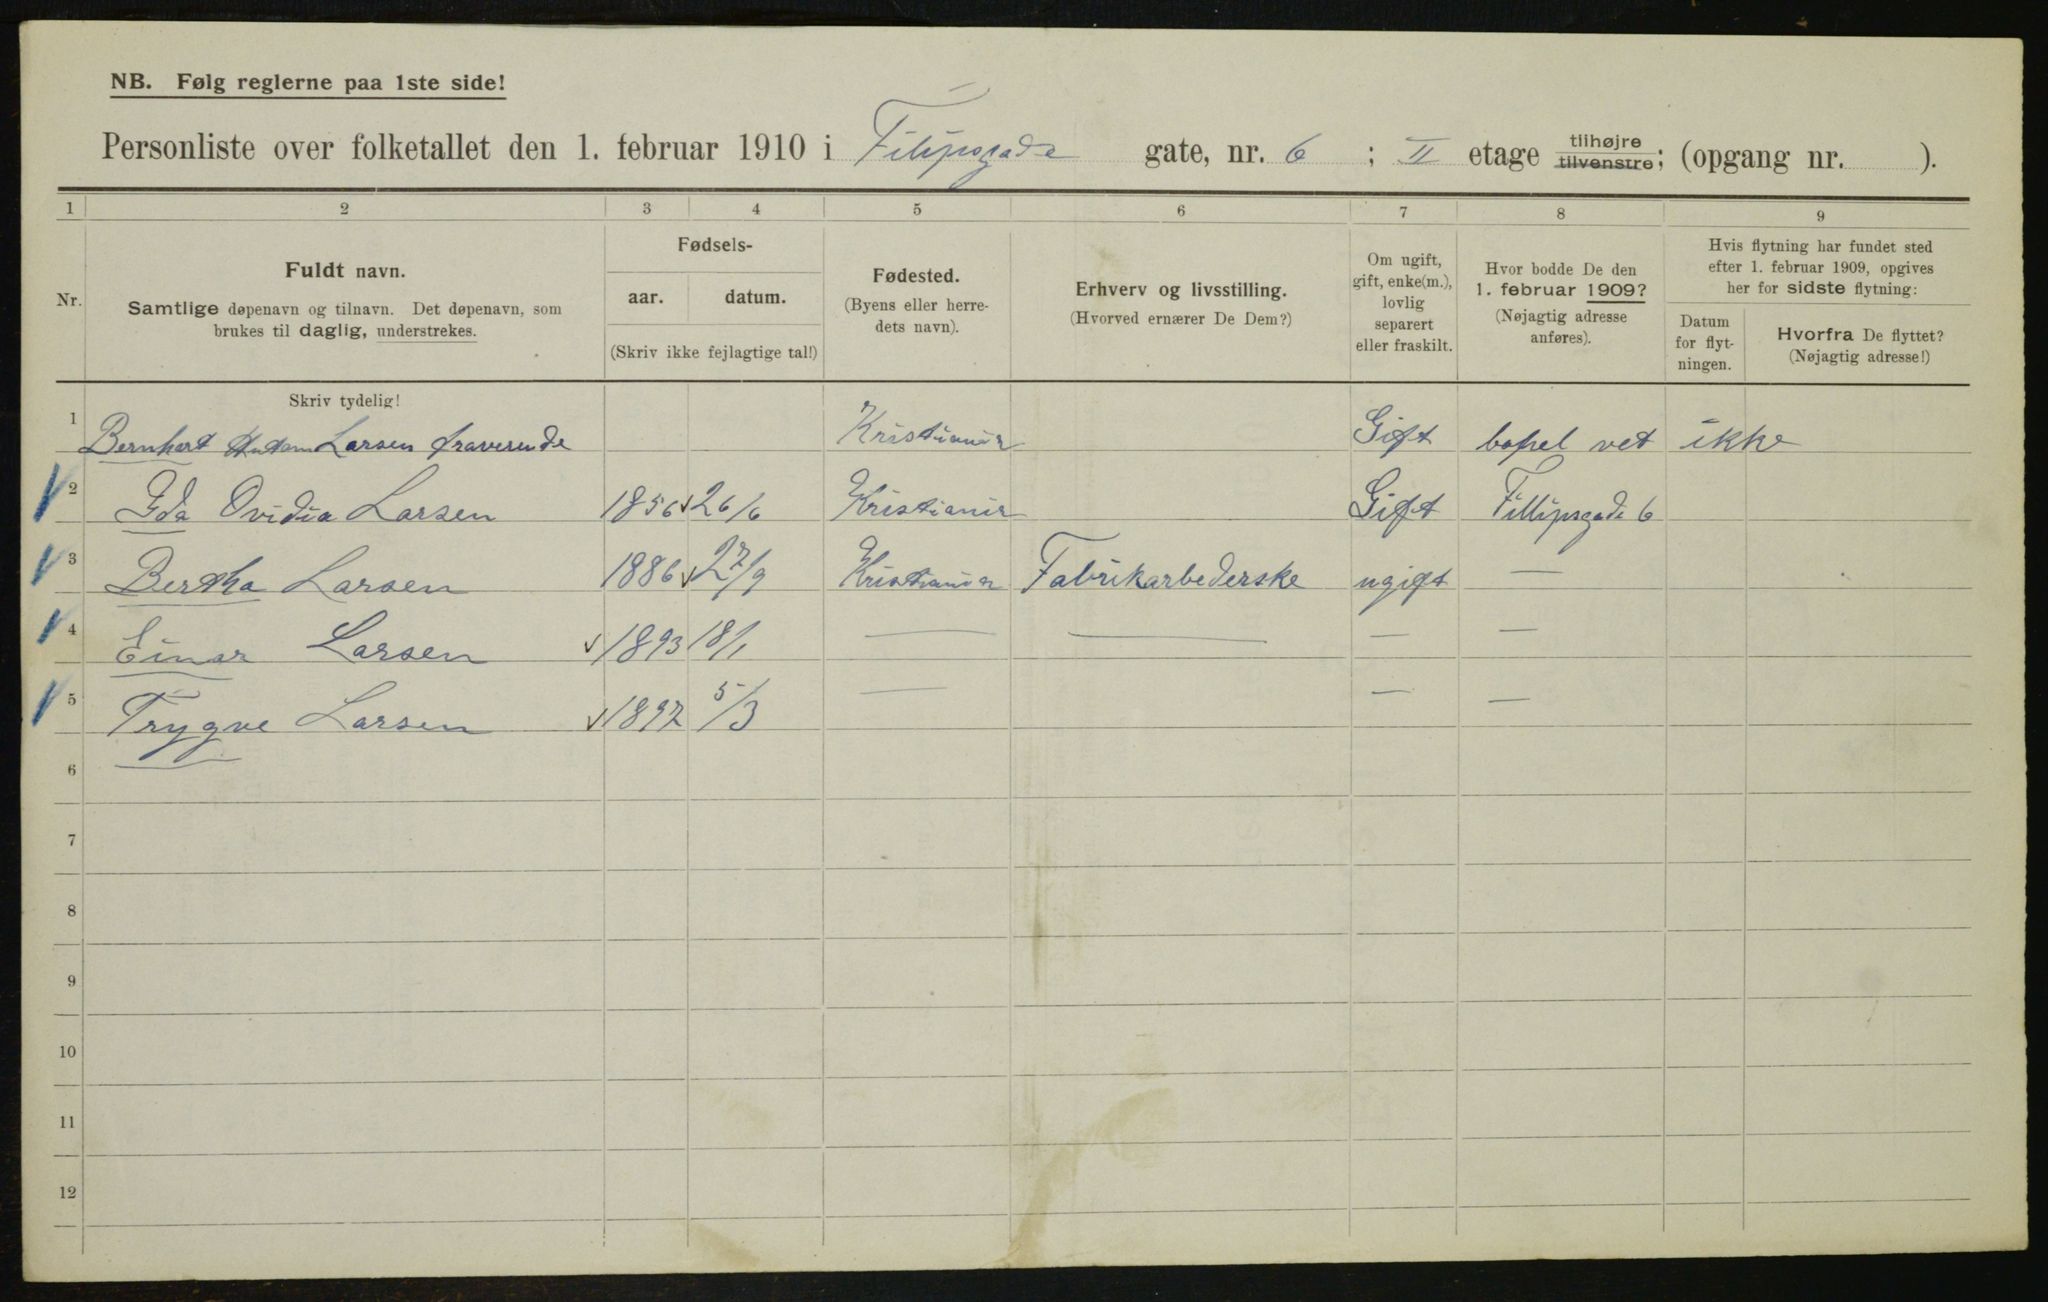 NB. Følg reglerne paa 1ste side!
Personliste over folketallet den 1. februar 1910 i Filipsgade gate, nr. 6 ; II etage tilhøjre tilvenstre; (opgang nr. ).
1 2 3 4 5 6 7 8 9
Nr.
Fuldt navn.
Samtlige døpenavn og tilnavn. Det døpenavn, som
brukes til daglig, understrekes.
Fødsels-
aar. datum.
(Skriv ikke fejlagtige tal!)
Fødested.
(Byens eller herre-
dets navn).
Erhverv og livsstilling.
(Hvorved ernærer De Dem?)
Om ugift,
gift, enke(m.),
lovlig
separert
eller fraskilt.
Hvor bodde De den
1. februar 1909?
(Nøjagtig adresse
anføres).
Hvis flytning har fundet sted
efter 1. februar 1909, opgives
her for sidste flytning:
Datum
for flyt-
ningen.
Hvorfra De flyttet?
(Nøjagtig adresse!)
Skriv tydelig!
1 Bernhart Larsen fraverende Kristiania Gift bopel vet ikke
2 Ida Ovidia Larsen 1856 26/6 Kristiania Gift Fillipsgade 6
3 Bertha Larsen 1886 27/9 Kristiania Fabrikarbederske ugift —
4 Einar Larsen 1893 18/1 — — — —
5 Trygve Larsen 1897 5/3 — — —
6
7
8
9
10
11
12